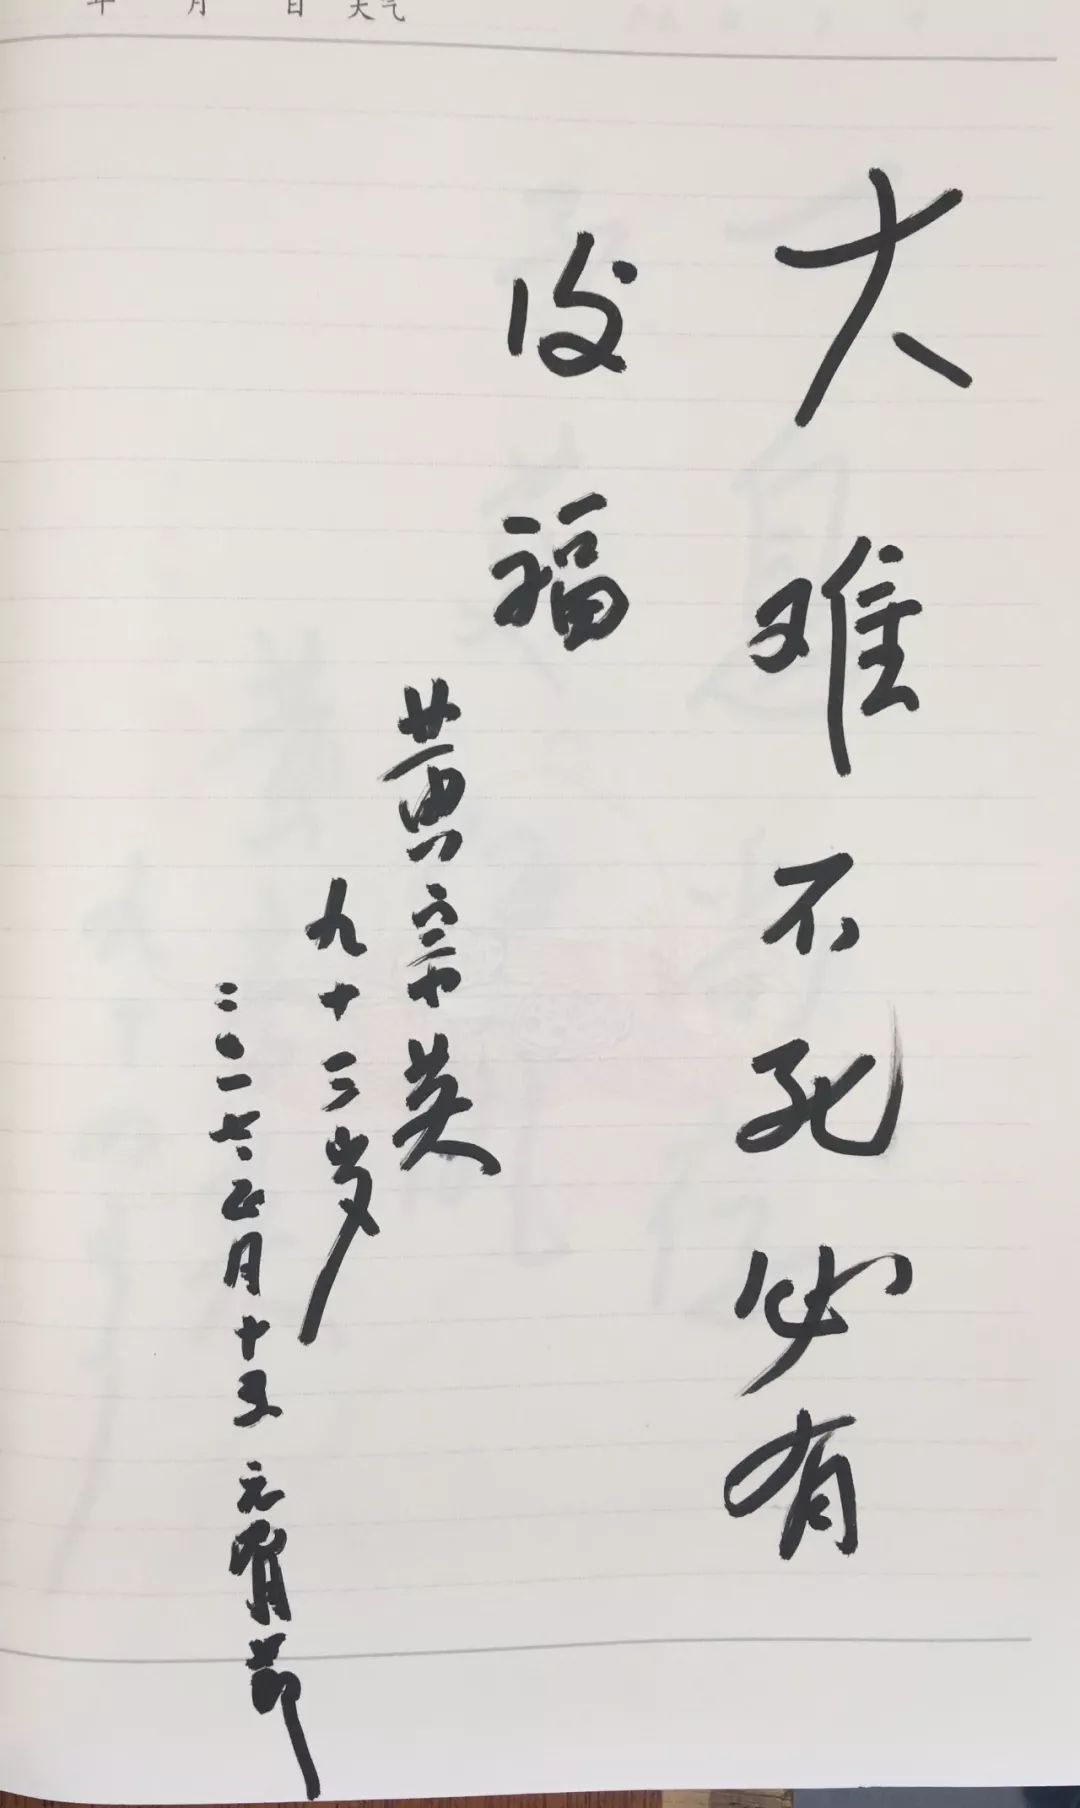 年 月 日 天气
大难不死必有
后福
黄宗英
九十三岁
二〇一七、正月十五 元宵节